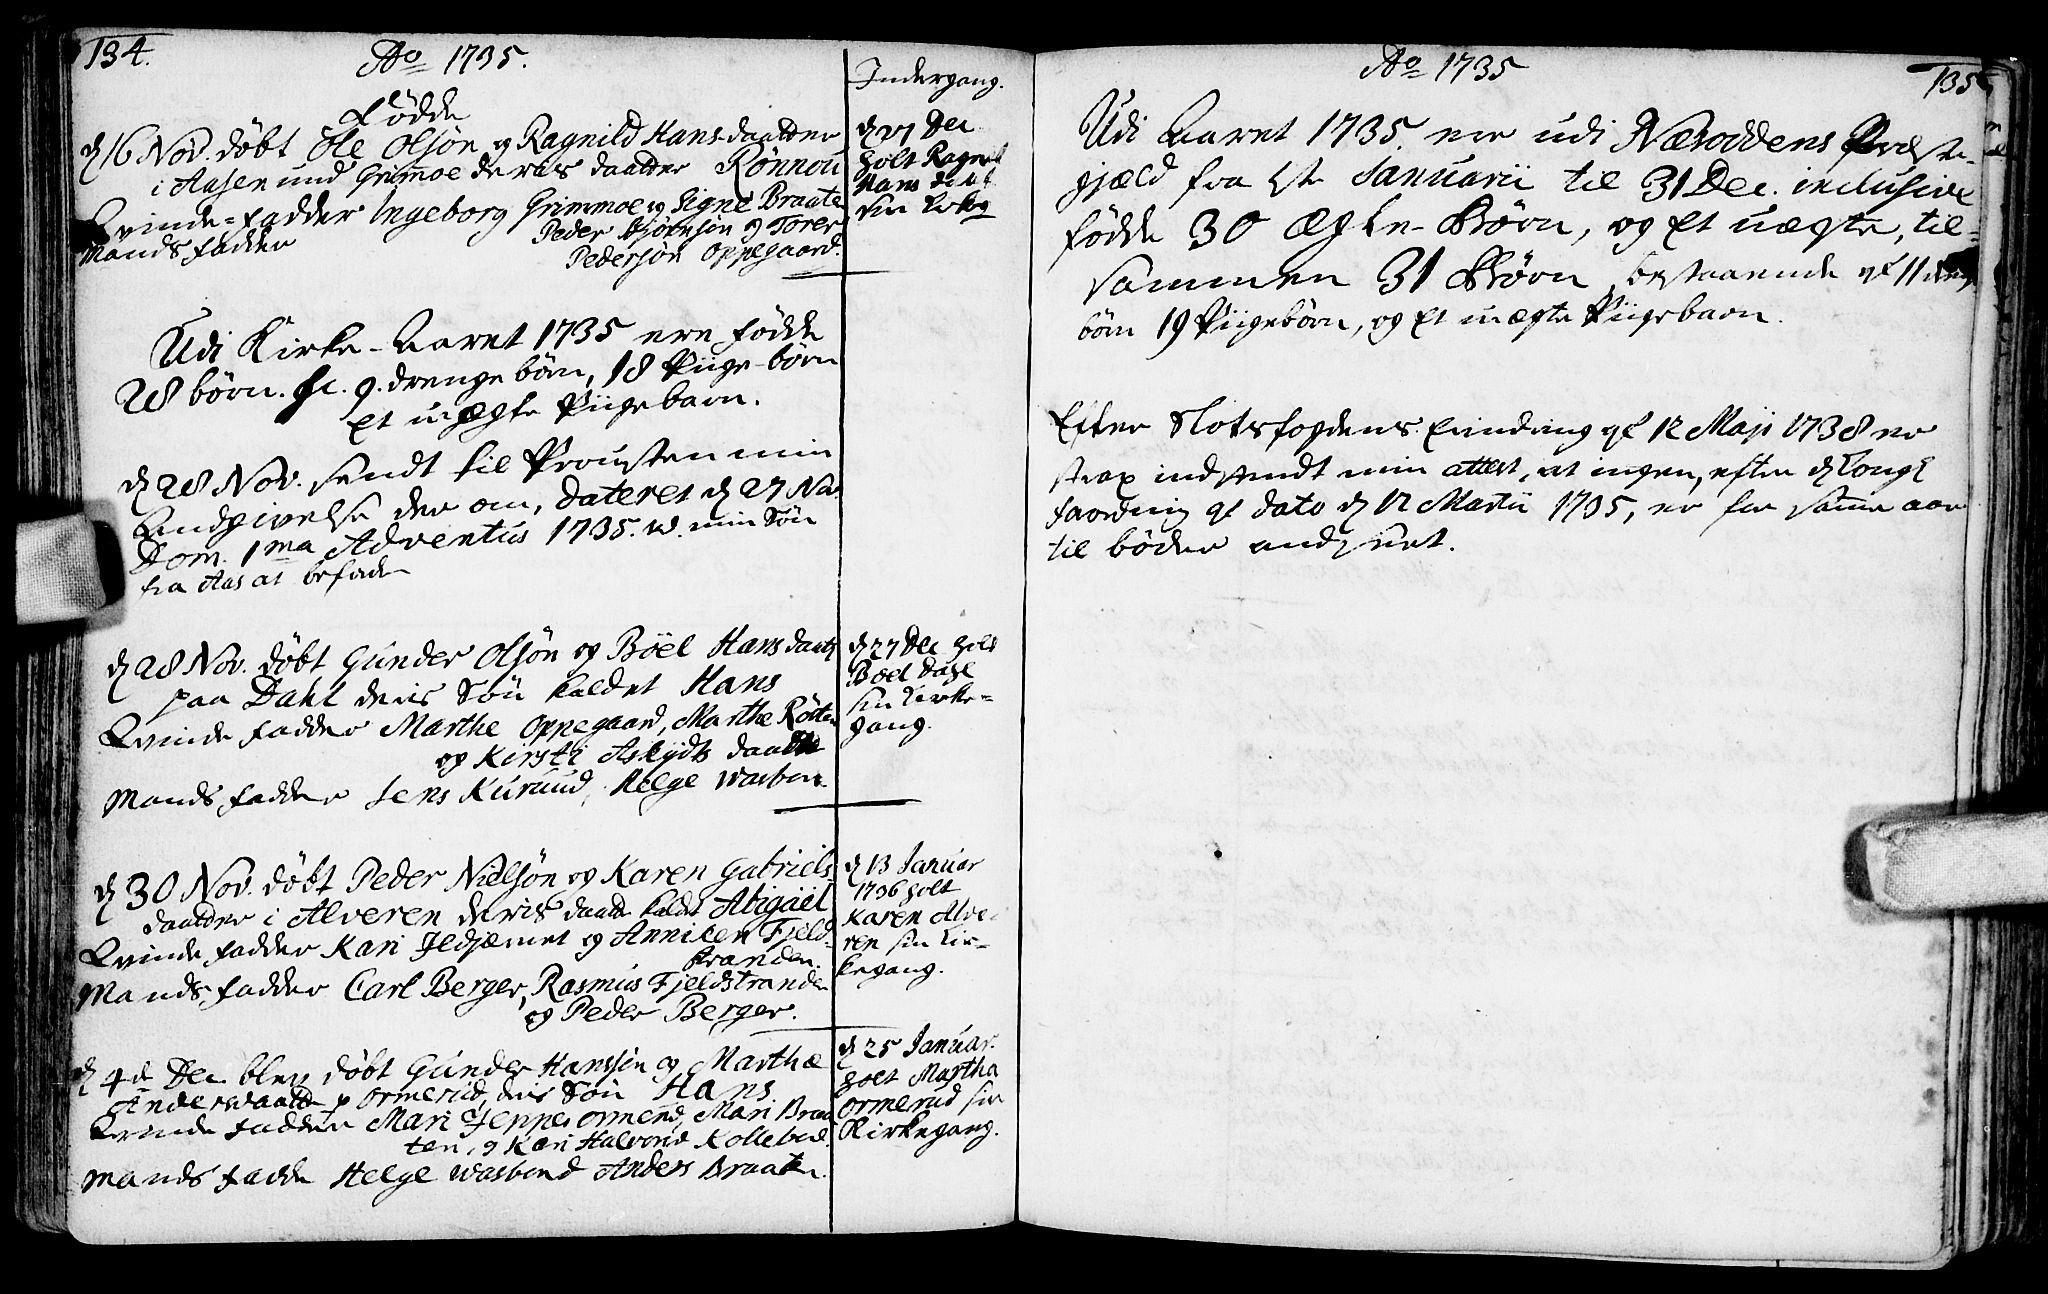 134.
Ao 1735.
Fødde
d 16 Nov. døbt Ole Olsøn og Ragnild Hansdaatter
i Aasen und Grimmoe deres daatter Rønnou
Qvinde-fadder Ingeborg Grimmoe og Signe Braate
Mands fadder Peder Biørnsøn og Torer
Pedersøn Oppegaard.
Indergang.
d 27 Dec.
holt Ragnild
Hans
sin Kirkeg
Udi Kirke-Aaret 1735 ere fødde
28 børn. sc. 9. drenge børn, 18 Piige-børn
et uægte Piigebarn.
d 28 Nov. sendt til Prousten min
Andgivelse der om, dateret d 27 Nov.
Dom. 1ma Adventus 1735. w. min Søn
fra Aas at
d 28 Nov. døbt Gunder Olsøn og Böel Hans daatt
paa Dahl deris Søn kaldet Hans
Qvinde fadder Marthe Oppegaard, Marthe Röcten
og Kirsti Askijdts daatter
Mands fadder Jens Kuruud, Helge Wasben
d 27 Dec holt
Boel Dahl
sin Kirke-
gang.
d 30 Nov. døbt Peder Nielsøn og Karen Gabriels
daatter i Alveren deris daatt kaldt Abigäel
Qvinde fadder Kari Ildjernet og Annicken Fjeld-
stranden.
Mands fadder Carl Berger, Rasmus Fjeldstranden
og Peder Berger.
d 13 Januar
1736 holt
Karen Alve
ren sin Kir-
kegang.
d 4de Dec. blev døbt Gunder Hanssøn og Marthe
Andersdaatter p Ormerud, deris Søn Hans
Qvinde fadder Mari Jeppes Ormerud, Mari Braa
ten, og Kari Halvorsd Kollebond.
Mands fadder Helge Wasbond Anders Braaten.
d 25 Januar.
holt Martha
Ormerud sin
Kirkegang.
Ao 1735
135
Udi Aaret 1735. ere udi Næsoddens Præste-
gjæld fra 1ste Januarii til 31 Dec. inclusive
fødde 30 ægte-Børn, og et uægte, til-
sammen 31 Børn, bestaaende af 11 dreng
børn 19 Piigebørn, og et uægte Piigebarn.
Efter Slotsfogdens Erindring af 12 Maji 1738 er
strax indsendt min attest, at ingen, efter d Kongl
forordning af dato d 12 Martii 1735, er for samme aar
til bøder andført.